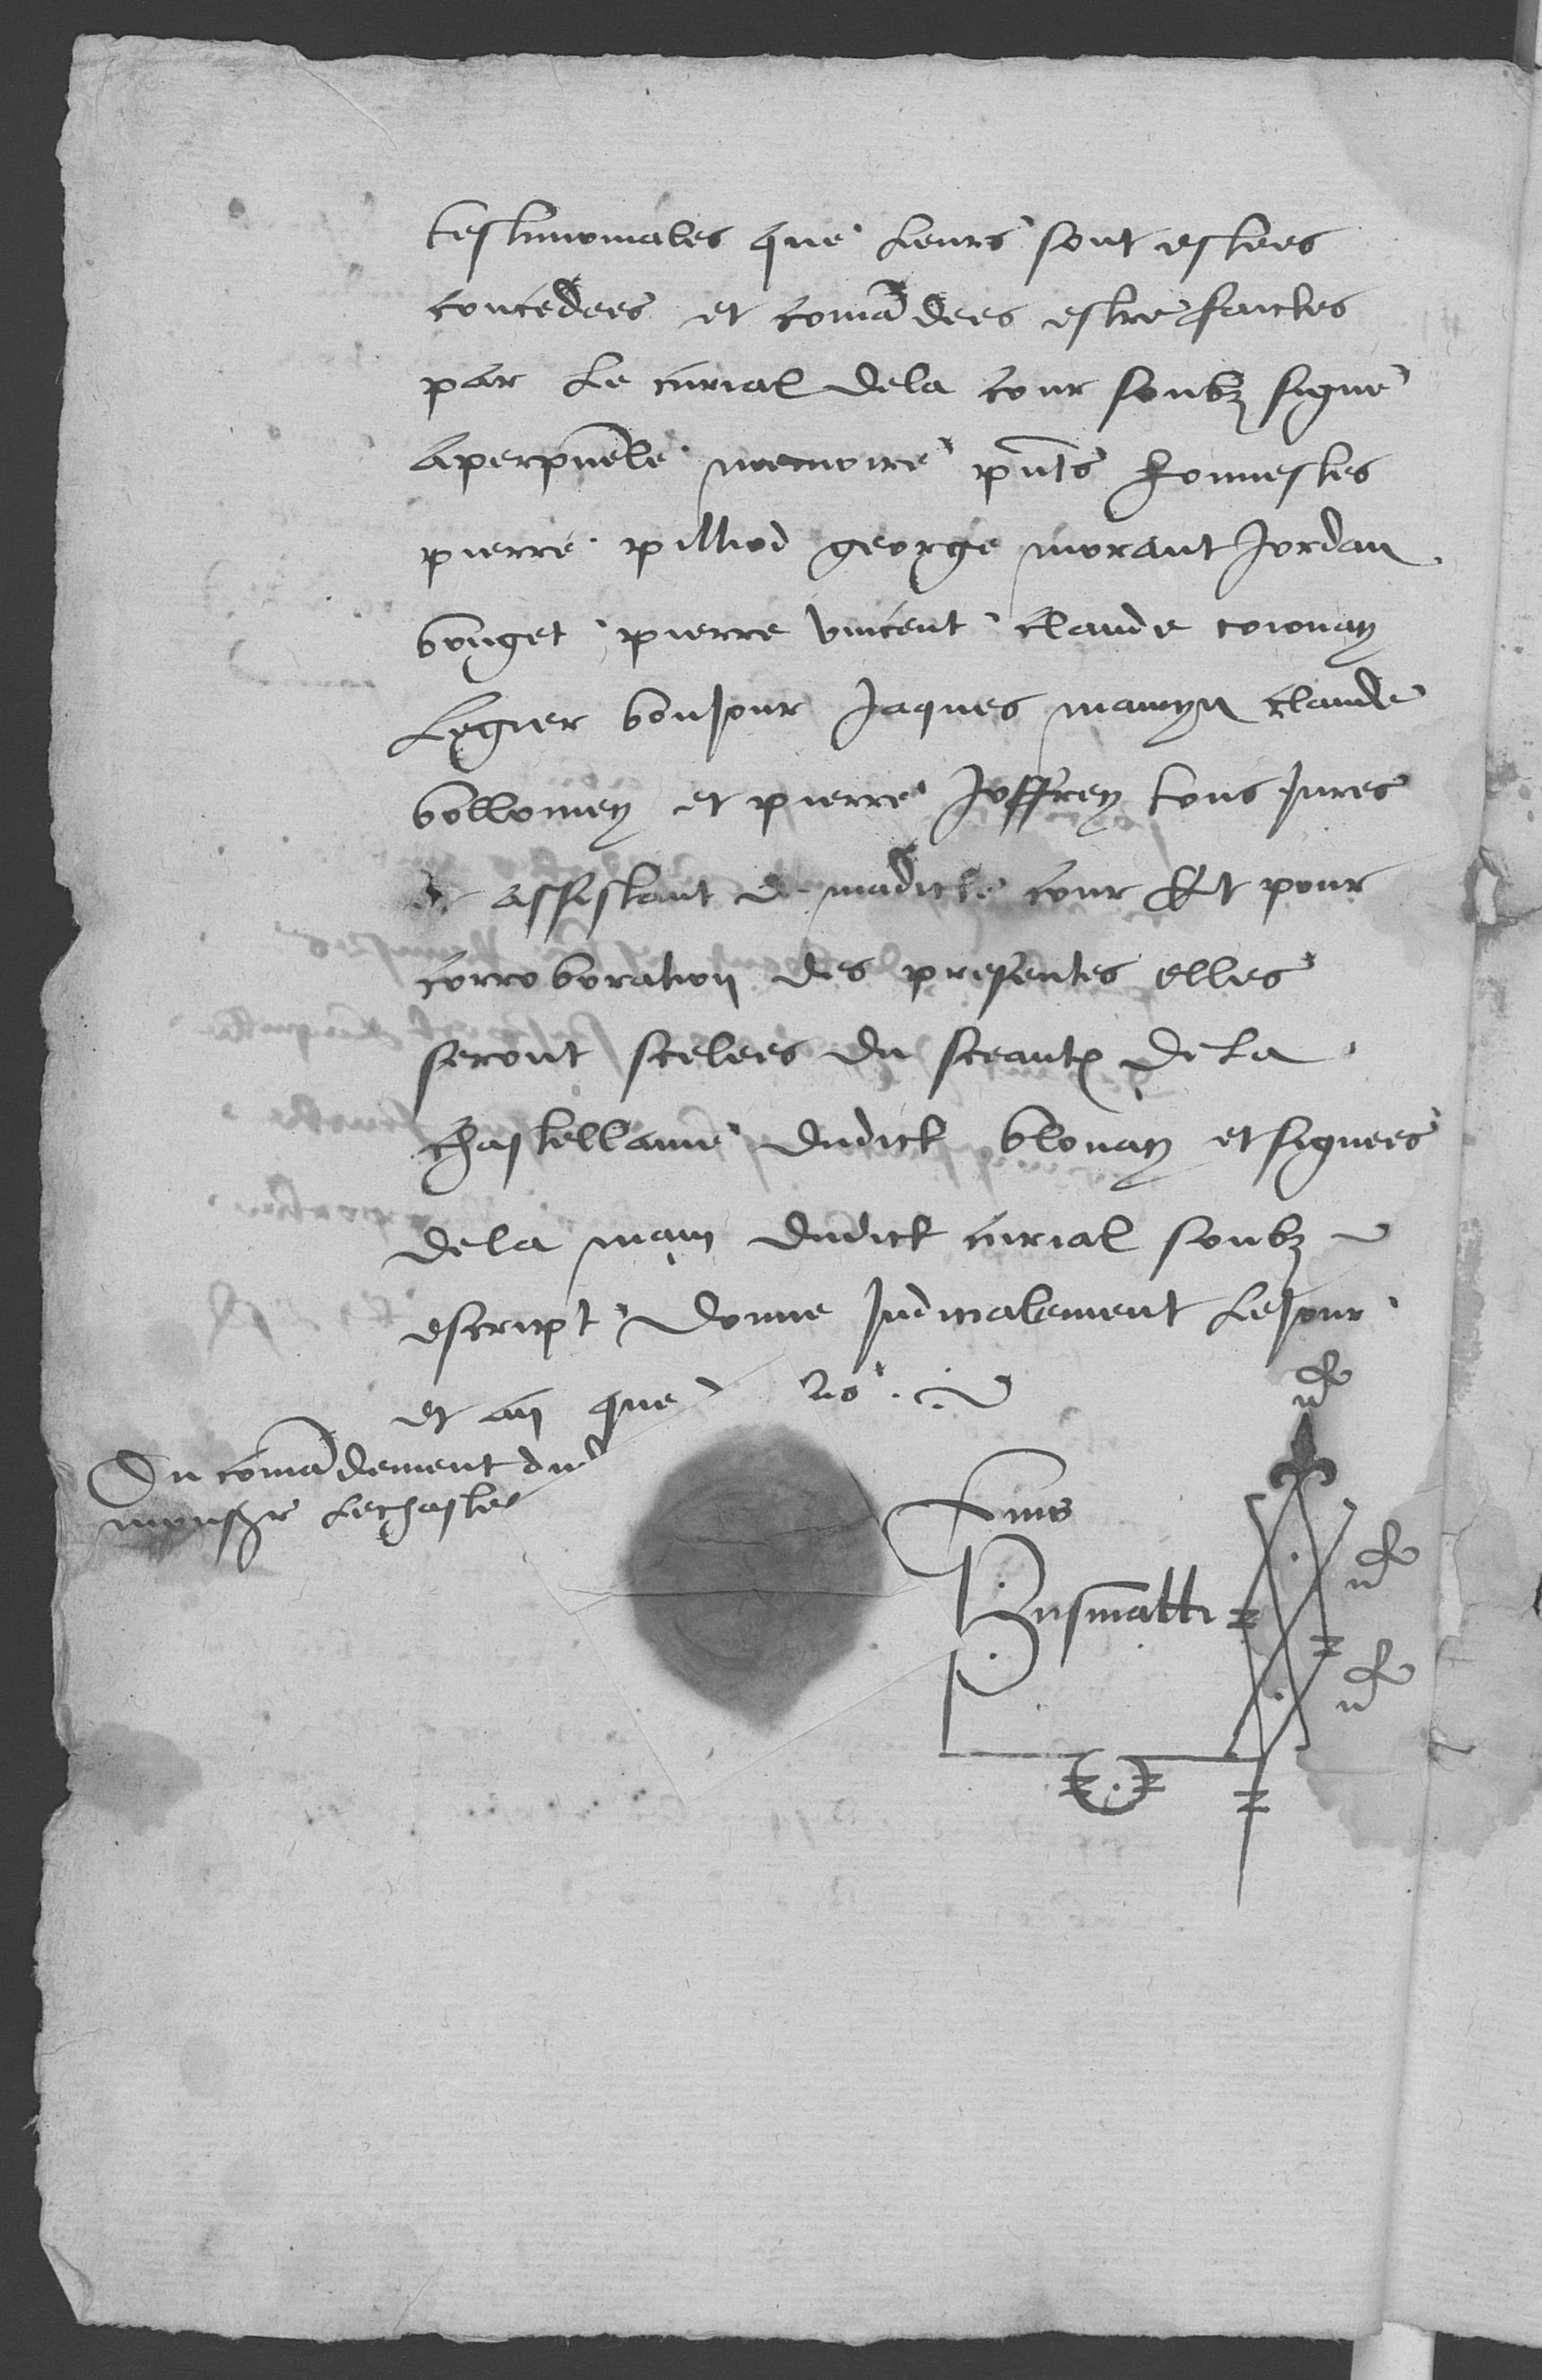 testimoniales que leurs sont estees
concedees et comãdees estre faictes
par le curial dela cour soubz signe
aperpuele memoire pnts honnestes
pierre pilliod george morant Jordan
bonget pierre vincent claude coionay
Legier bonJour Jaques mamyn claude
bollomey et pierre Joffrey tous Jures
et assistant de madicte cour Et pour
corroboration des presentes elles
seront scelees du sceautz de la
chastellanie dudict blonay et signees
dela main dudict curial soubz
escript donne Judicialement le Jour
et an que
Du comãdement dud
monsgr lechaste